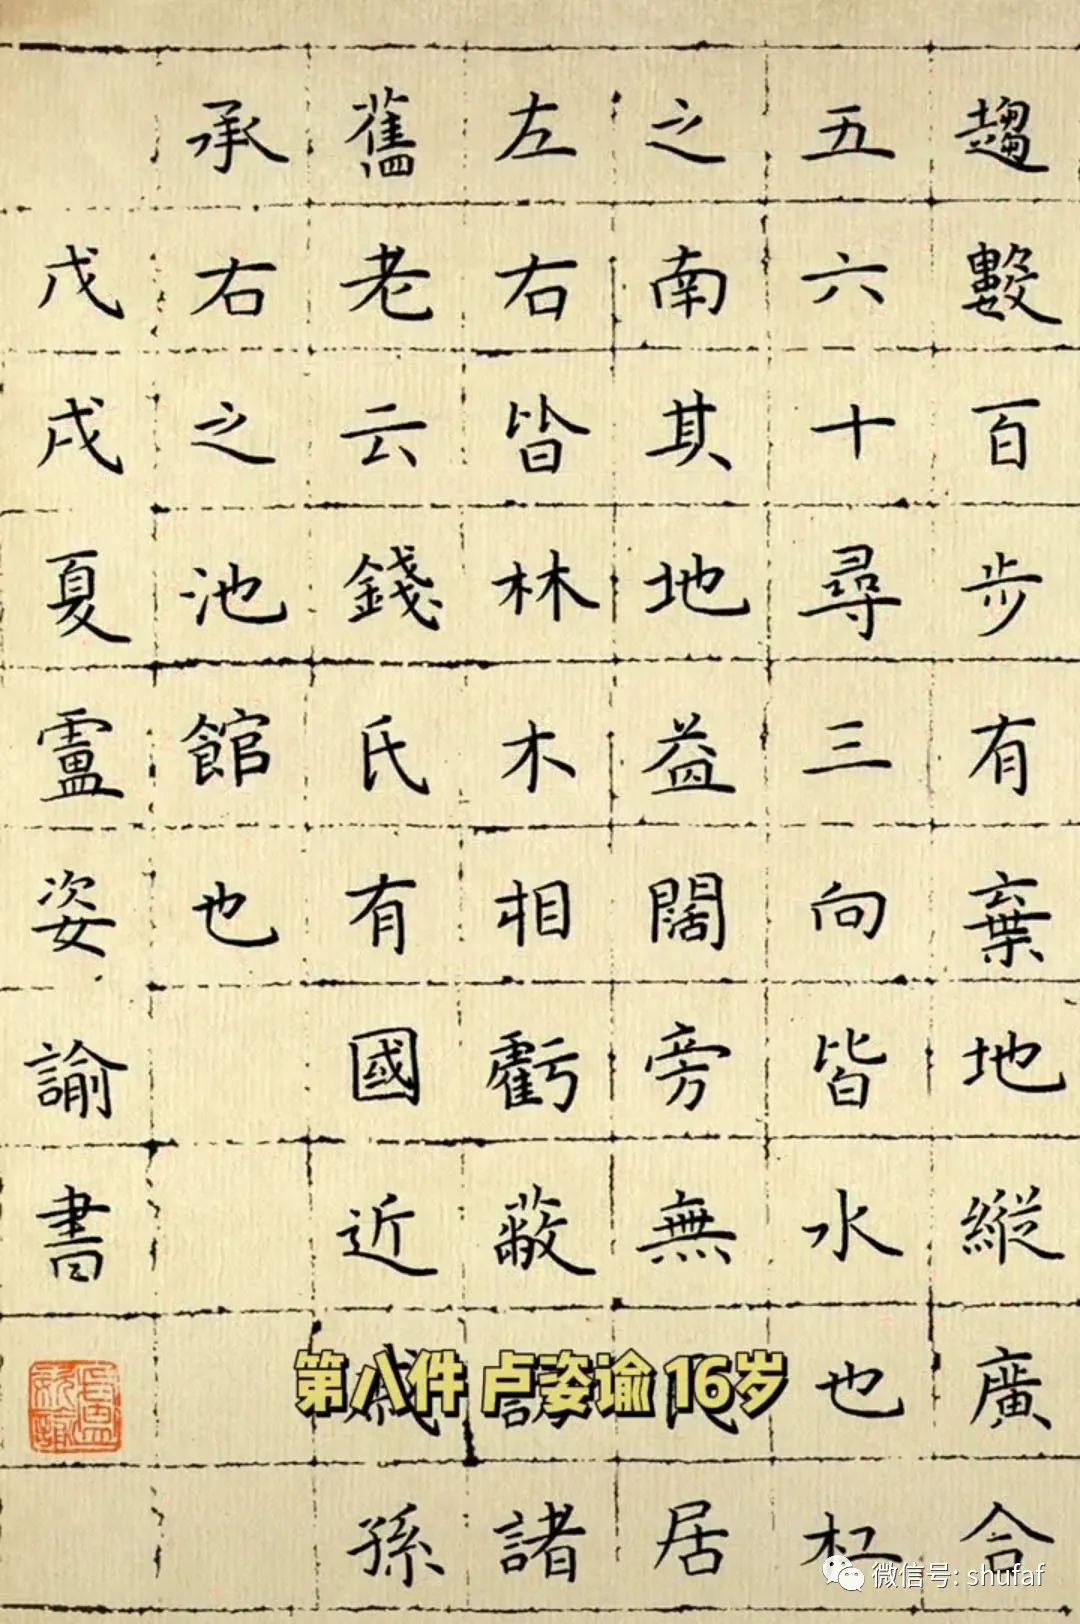 趨數百步有棄地縱廣合
五六十尋三向皆水也杠
之南其地益闊旁無居
左右皆林木相虧蔽諸
舊老云錢氏有國近孫
承右之池館也
戊戌夏盧姿諭書
第八件 卢姿谕 16岁
微信号: shufaf